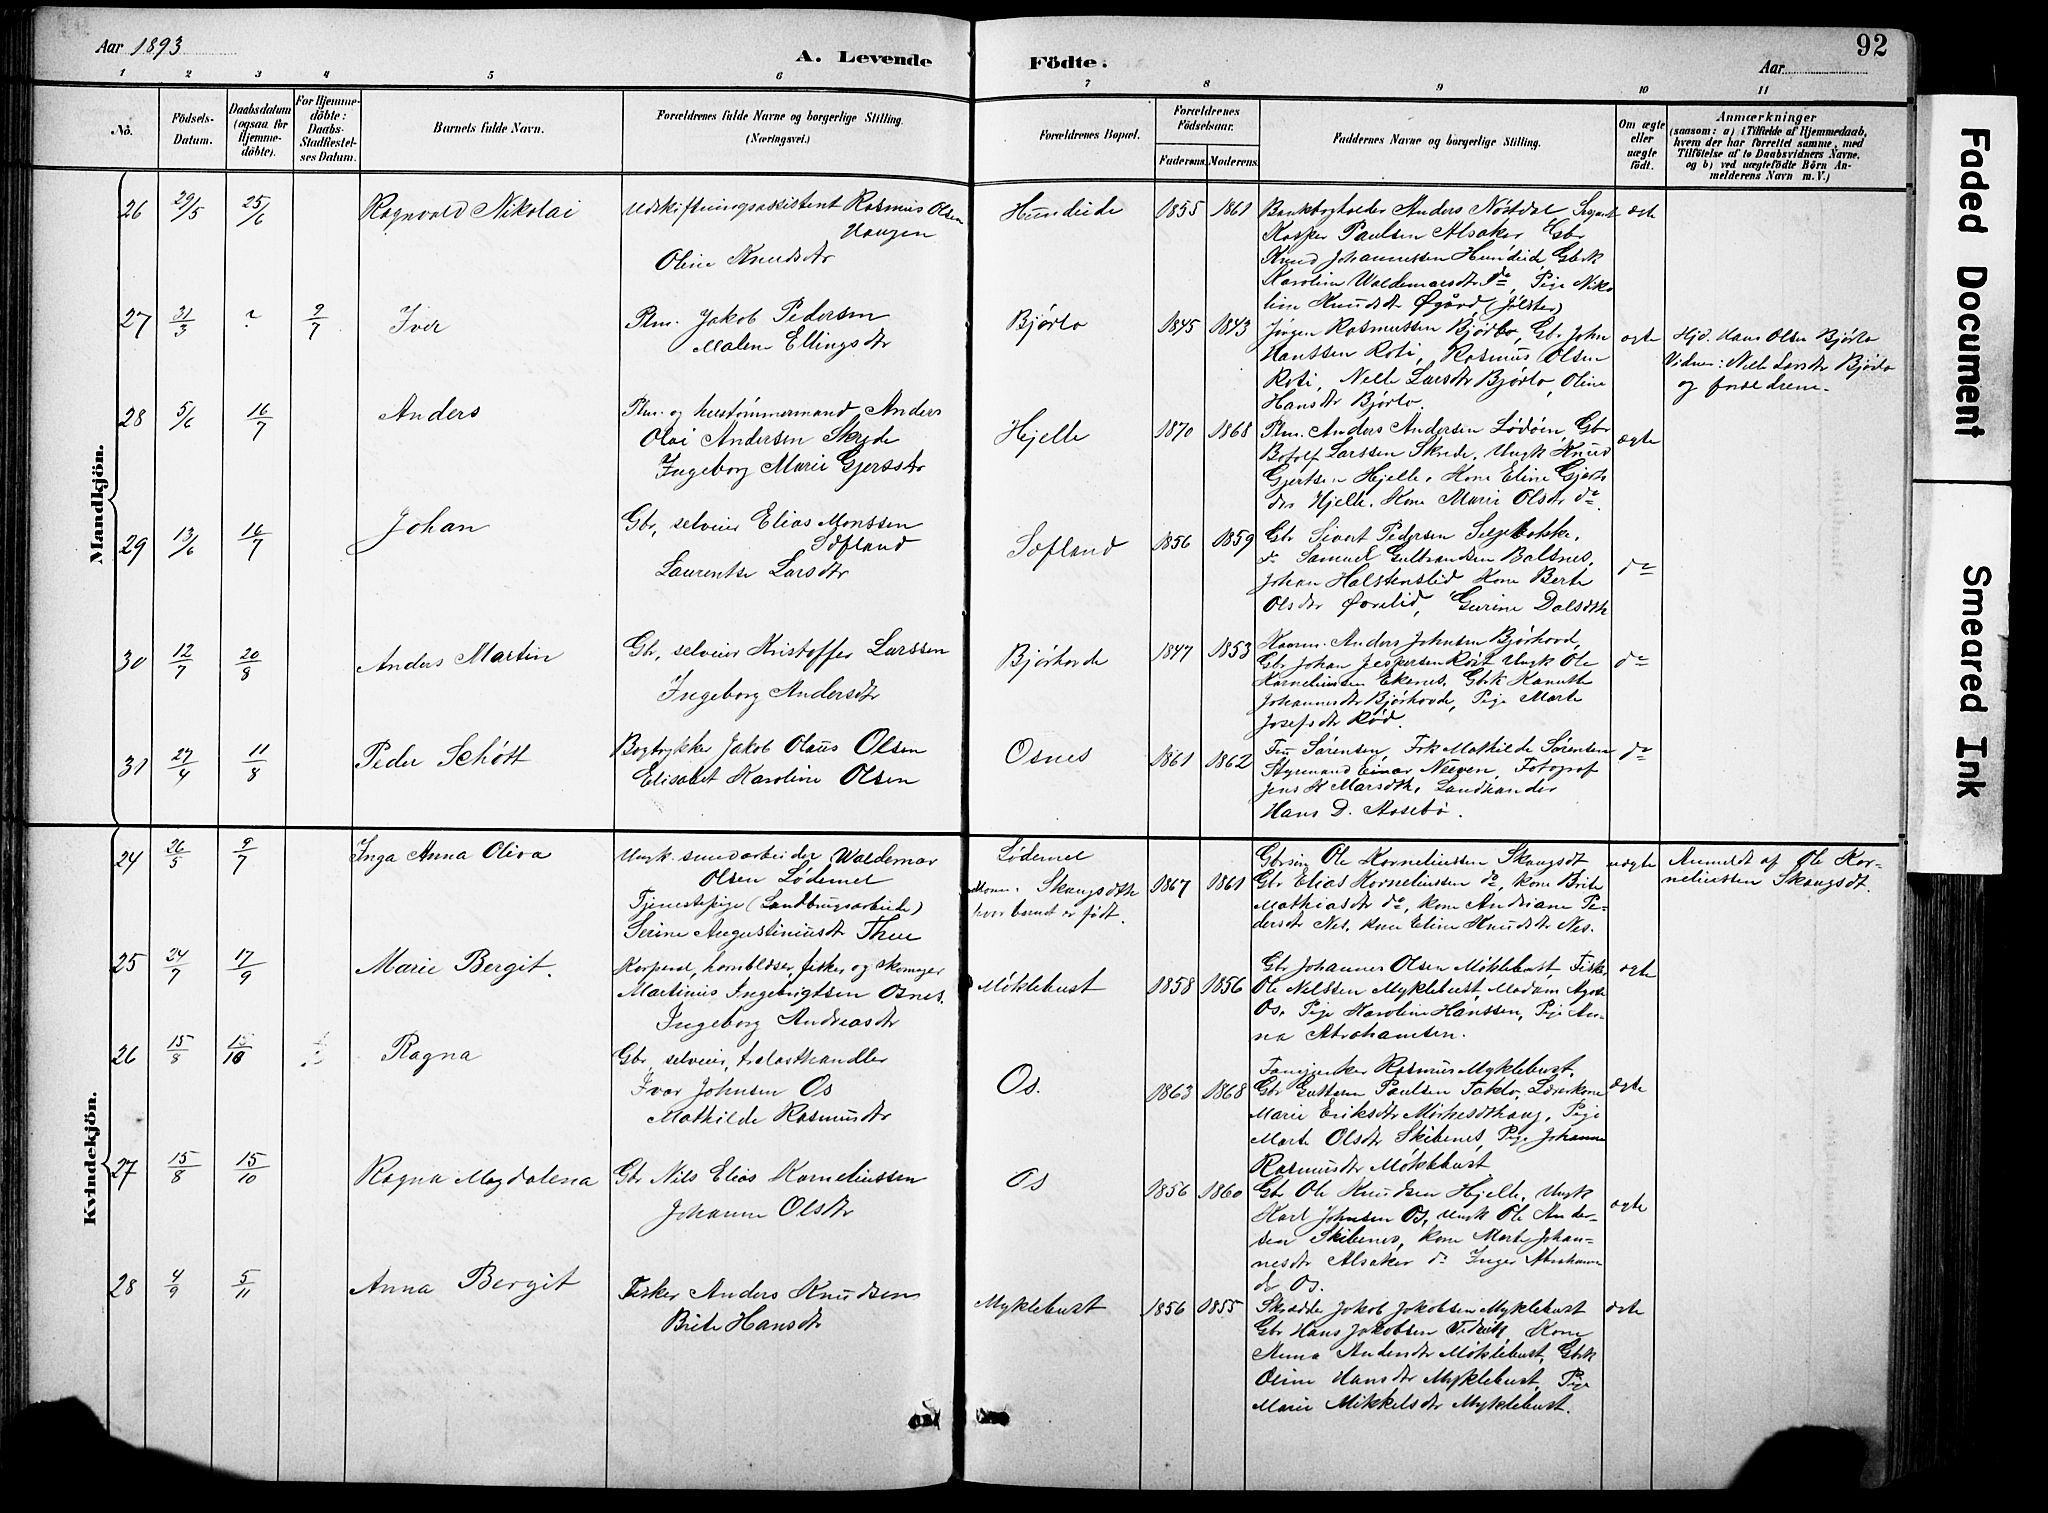 Aar 1893
A. Levende
Födte.
Aar
92
1 2 3 4 5 6 7 8 9 10 11
No.
Födsels-Datum.
Daabsdatum (ogsaa for Hjemmedöbte).
For Hjemmedöbte: Daabs-Stadfæstelses Datum.
Barnets fulde Navn.
Forældrenes fulde Navne og borgerlige Stilling. (Næringsvei.)
Forældrenes Bopæl.
Forældrenes Födselsaar.
Faderens. Moderens.
Faddernes Navne og borgerlige Stilling.
Om ægte eller uægte födt.
Anmærkninger
(saasom: a) i Tilfælde af Hjemmedaab, hvem der har forrettet samme, med Tilföielse af to Daabsvidners Navne, og b) ved uægtefödte Börn Anmelderens Navn m. V.)
Mandkjön.
26 29/5 25/6 Ragnvald Nikolai
Udskiftningsassistent Rasmus Olsen
Haugen
Oline Knudsdtr
Hundeide 1855 1861
Bankbogholder Anders Nöstdal, Sergeant
Kasper Paulsen Alsaker Gbr
Knud Johannessen Hundeid Gbrk
Karoline Waldemarsdtr do, Pige Niko
line Knudsdtr Øgård (Jölster)
ægte
27 31/3 ? 9/7 Iver
Plm. Jakob Pedersen
Malene Ellingsdtr
Bjørlo 1845 1843
Jørgen Rasmussen Bjørlo, Gbr John
Hanssen Roti, Rasmus Olsen
Roti, Nelle Larsdtr Bjørlo, Oline
Hansdtr Bjørlo.
ægte
Hjd. Hans Olsen Bjørlo
Vidner: Nelle Larsdtr Bjørlo
og forældrene.
28 5/6 16/7 Anders
Plm. og hustømmermand Anders
Olai Andersen Skrede
Ingeborg Marie Gjertsdtr
Hjelle 1870 1868
Plm. Anders Andersen Lødøen, Gbr
Botolf Larssen Skrede, Ungk Knud
Gjertsen Hjelle, Kone Eline Gjerts
dtr Hjelle, Kone Marie Olsdtr do.
ægte
29 13/6 16/7 Johan
Gbr, selveier Elias Monssen
Sæfland
Laurentse Larsdtr
Sæfland 1856 1859
Gbr Sivert Pedersen
do Samuel Gulbrandsen Balsnes,
Johan Halstenslid Kone Berte
Olsdtr Øvrelid, Gurine Dalsdtr
do
30 12/7 20/8 Anders Martin
Gbr, selveier Kristoffer Larssen
Ingeborg Andersdtr
Bjørhovde 1847 1853
Kaarm. Anders Johnsen Bjørhovd,
Gbr Johan Jespersen Rört Ungk Ole
Korneliussen Ekenes, Gbrk Kanutte
Johannesdtr Bjørhovde, Pige Marte
Josefsdtr Rød.
do
31 27/4 11/8 Peder Schøtt
Bogtrykker Jakob Olaus Olsen
Elisabet Karoline Olsen
Osnes 1861 1862
Fru Sørensen, Frk Mathilde Sørensen
Styrmand Einar Neeven, Fotograf
Jens K Marsdth, Landhandler
Hans D. Aasebø.
do
Kvindekjön.
24 26/5 9/7 Inga Anna Oliva
Ungk. smedarbeider Waldemar
Olsen Lødemel
Tjenestepige (Landbrugsarbeide)
Serine Augustinusdtr Thue
Lødemel
Mom: Skaugsdth
hvor barnet er født.
1867 1861
Gbrsøn Ole Korneliussen Skaugsdt
Gbr Elias Korneliussen do, kone Brite
Mathiasdtr do, kone Andriane Pe-
dersdtr Nes, kone Eline Knudsdtr Nes.
uægte
Anmeldt af Ole Kor-
neliussen Skaugsdt.
25 24/7 17/9 Marie Bergit.
Korporal, hornblæser, fisker og skomager
Martinus Ingebrigtsen Osnes.
Ingeborg Andreasdtr
Møklebust 1858 1856
Gbr Johannes Olsen Møklebust, Fisker
Ole Nilssen Myklebust, Madam Agote
Os, Pige Karoline Hanssen, Pige An-
na Abrahamsen.
ægte
26 15/8 Ragna
Gbr, selveier, trelasthandler
Ivar Johnsen Os
Mathilde Rasmusdtr
Os. 1863 1868
Rasmus Myklebust,
Gbr Guttorm Paulsen Taklo, Lærerkone
Marie Eriksdtr Mørkesdthaug, Pige
Marte Olsdtr Skibenes, Pige Johanne
Rasmusdtr Møklebust
ægte
27 15/8 15/10 Ragna Magdalena
Gbr Nils Elias Korneliussen
Johanne Olsdtr
Os 1856 1860
Gbr Ole Knudsen Hjelle, Ungk
Karl Johnsen Os, ungk Ole Ander-
sen Skibenes, kone Marte Johan-
nesdtr Alsaker do Inger Abrahams
dtr Os.
ægte
28 4/9 5/11 Anna Bergit
Fisker Anders Knudsen
Brite Hansdtr
Myklebust 1856 1855
Skrædder Jakob Jakobsen Myklebust
Gbr Hans Jakobsen Kone
Anna Andersdtr Møklebust, Gbrk
Oline Hansdtr Myklebust, Pige
Marie Mikkelsdtr Myklebust.
ægte
Faded Document
Smeared Ink